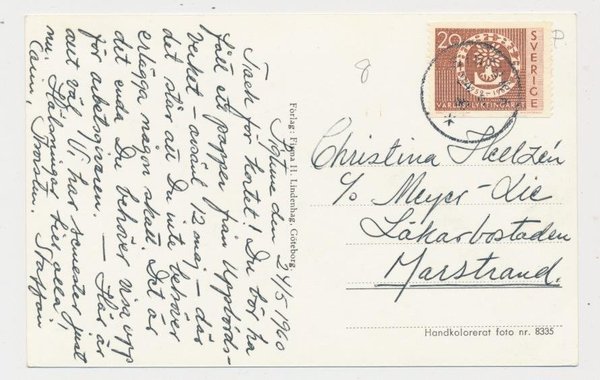 Nötme den 24/5 1960
Tack för kortet! Du bör ha
fått ett papper från Uppbörds-
verket – avsänt 12 maj – där
det står att Du inte behöver
erlägga någon skatt. Det är
det enda Du behöver visa upp
för arbetsgivaren. – Här är
allt väl. Vi har semester just
nu. Hälsningar från alla,
Carin, Torsten, Staffan
Förlag: Firma H. Lindenhag, Göteborg
8
20
SVERIGE
VÄRLDSFLYKTINGÅRET
1959-1960
Christina Hellzén
c/o Meyer-Lie
Läkarbostaden
Marstrand.
Handkolorerat foto nr. 8335